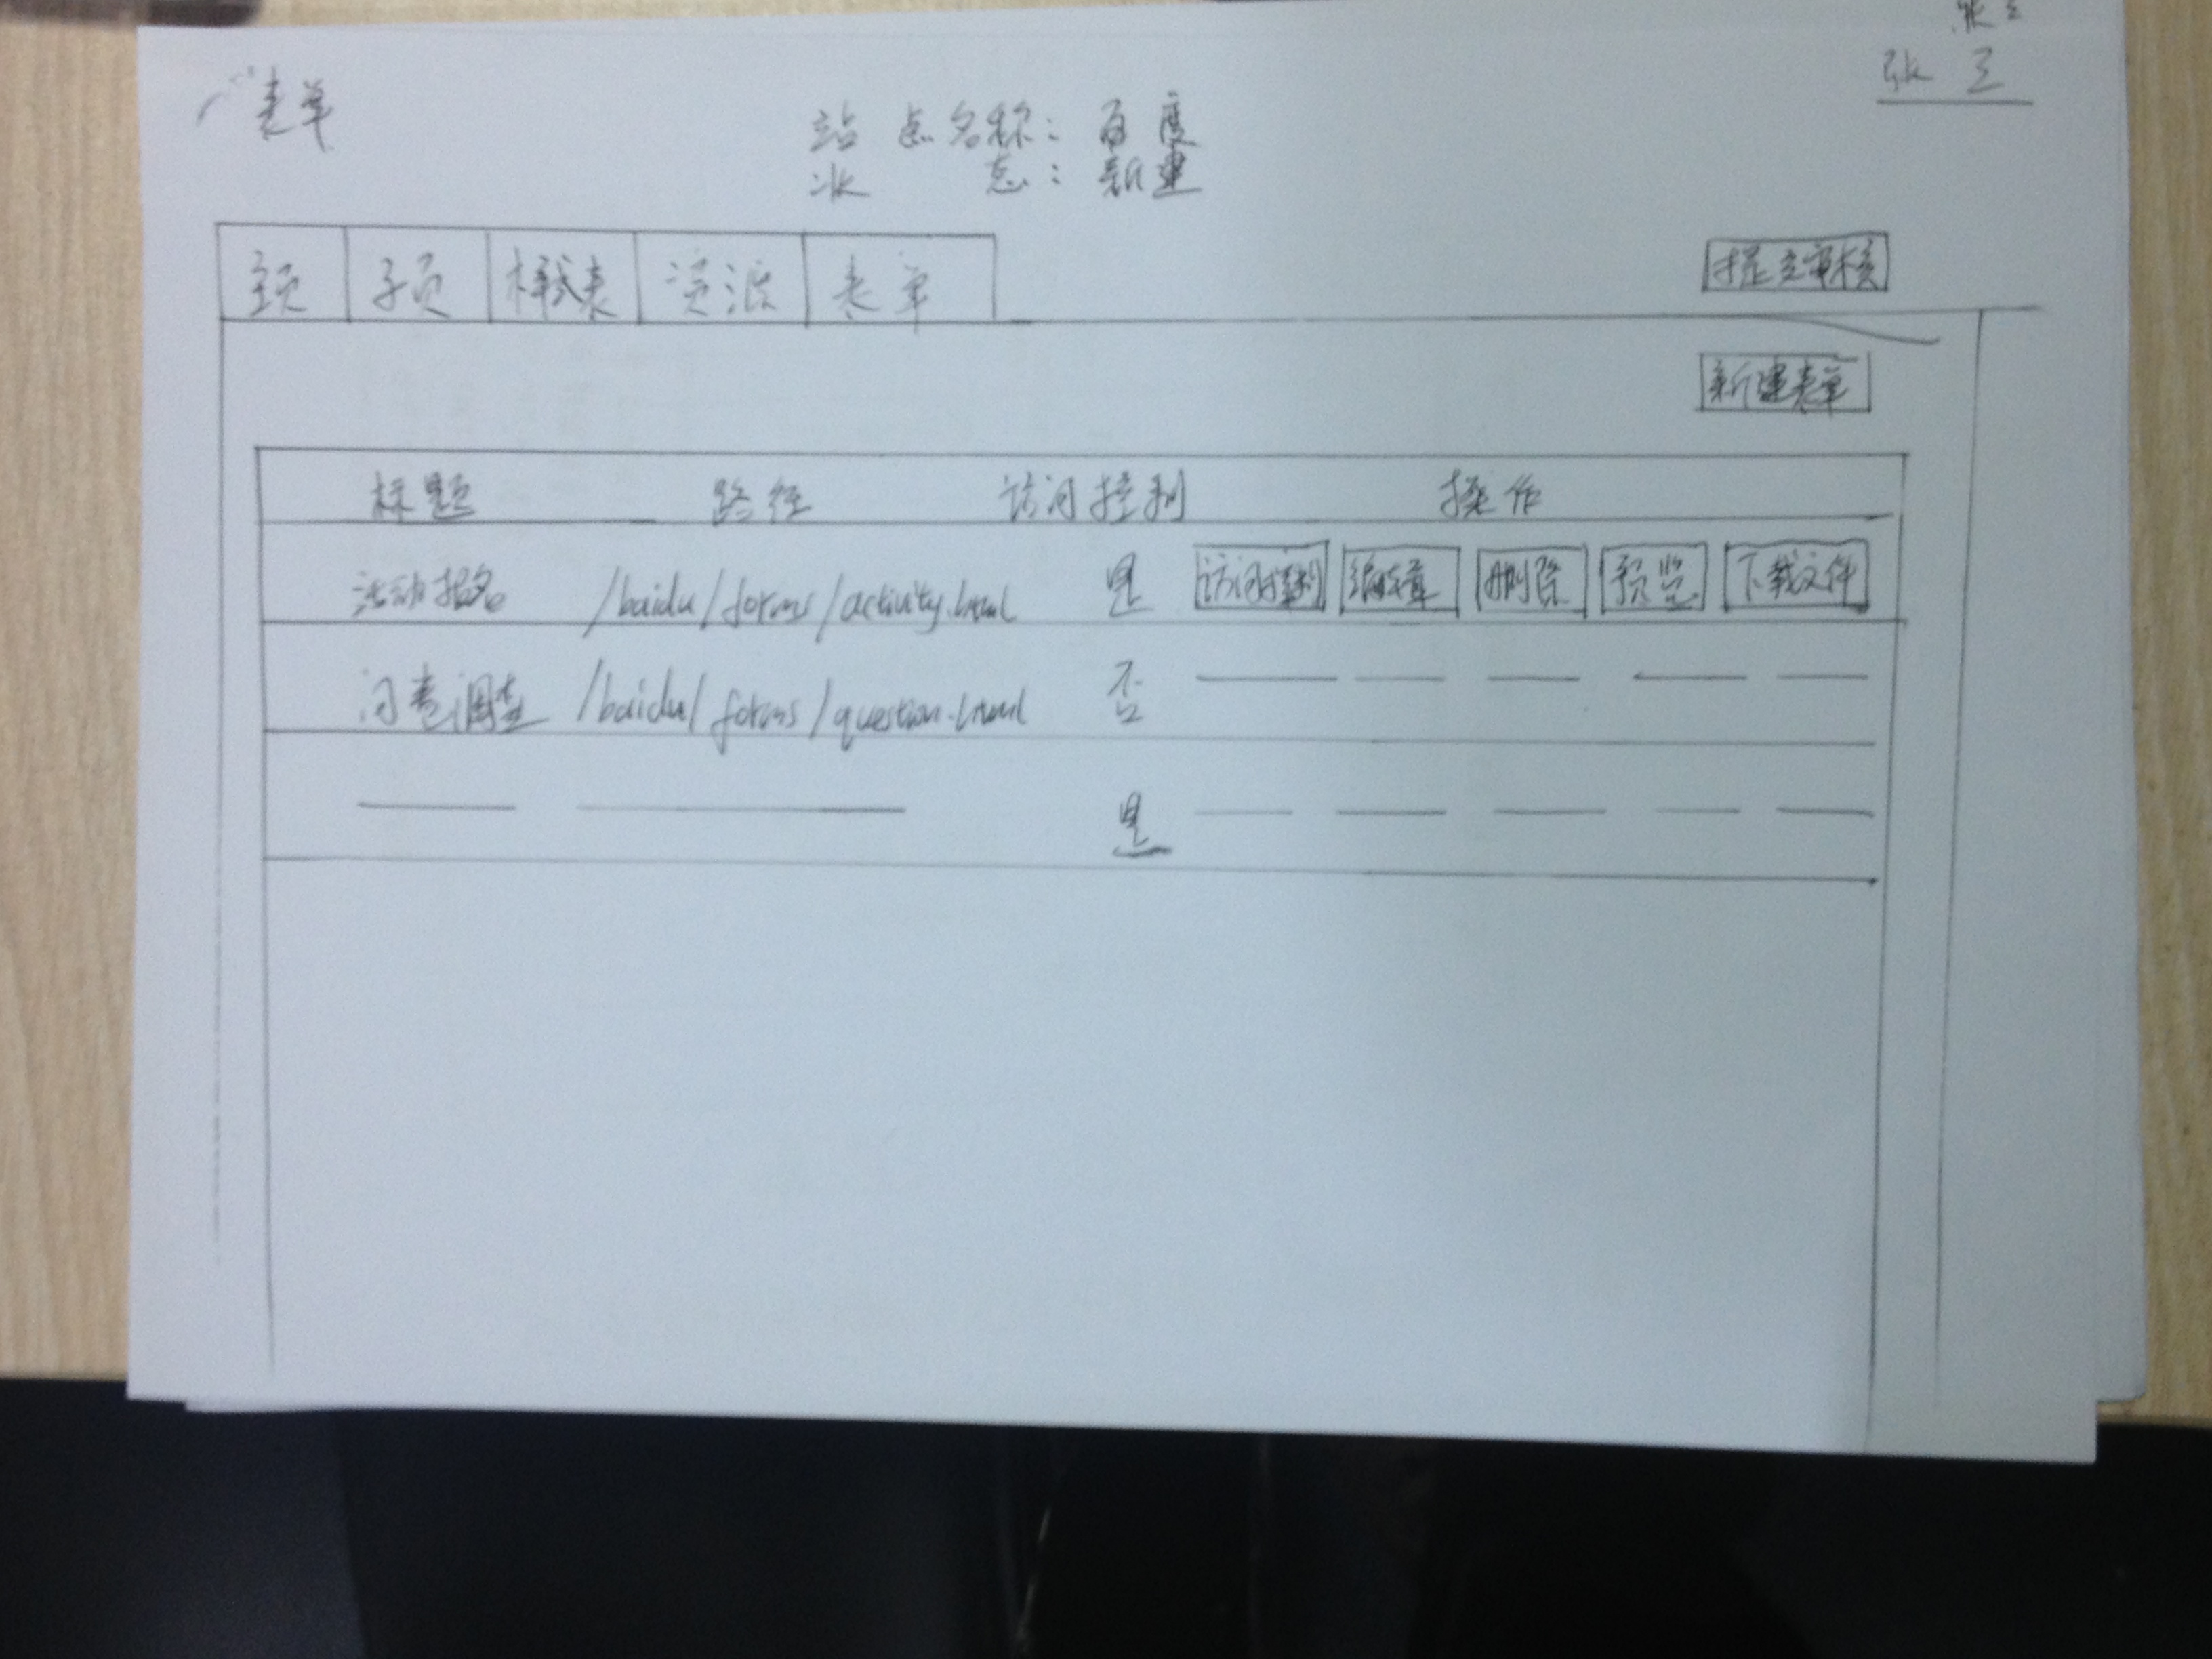 张三
张三
表单
站点名称：百度
状态：新建
主页 子页 样式表 资源 表单
提交审核
新建表单
标题 路径 访问控制 操作
活动报名 /baidu/forms/activity.html 是 访问控制 编辑 删除 预览 下载文件
问卷调查 /baidu/forms/question.html 否
是